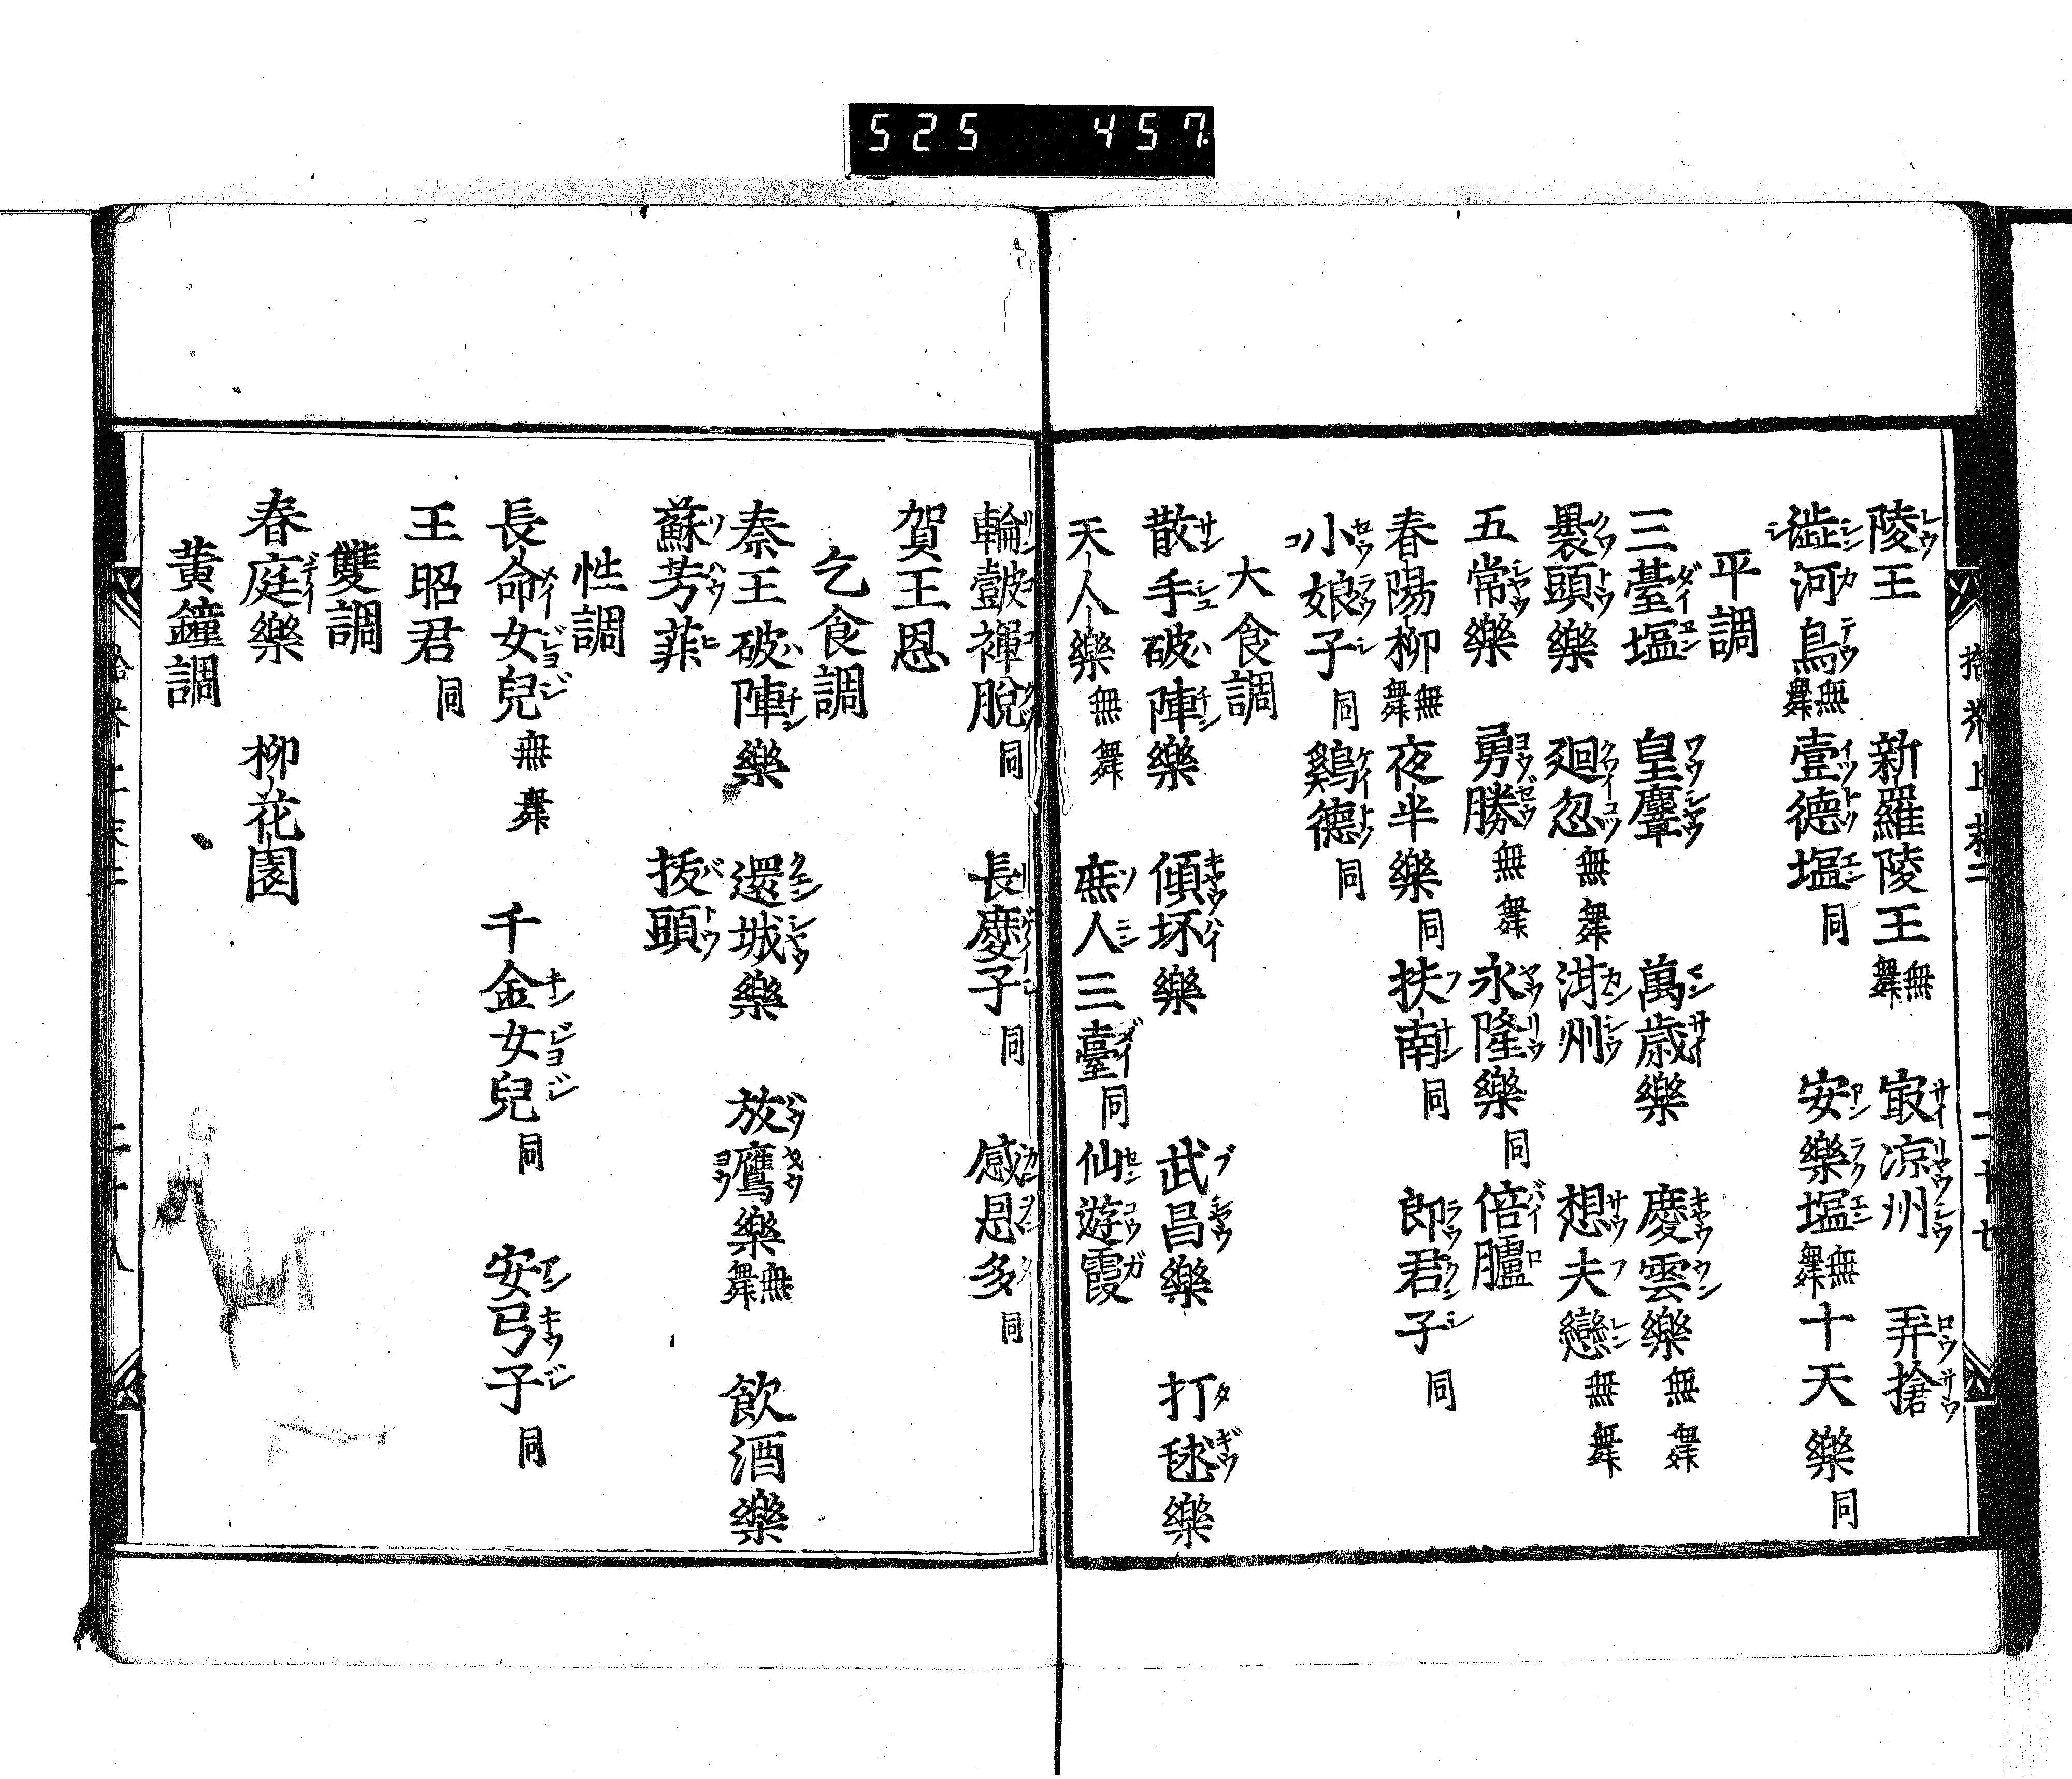 525 457
陵王 新羅陵王無舞 冣凉州 弄搶
澁河鳥無舞 壹德塩同 安樂塩無舞 十天樂同
平調
三臺塩 皇麞 萬歳樂 慶雲樂無舞
褁頭樂 廻忽無舞 泔州 想夫戀無舞
五常樂 勇勝無舞 永隆樂同 倍臚
春陽柳無舞 夜半樂同 扶南同 郎君子同
小娘子同 鷄德同
大食調
散手破陣樂 傾坏樂 武昌樂 打毬樂
天人樂無舞 庶人三臺同 仙遊霞
輪皷褌脫同 長慶子同 感恩多同
賀王恩
乞食調
秦王破陣樂 還城樂 放鷹樂無舞 飲酒樂
蘇芳菲 抜頭
性調
長命女兒無舞 千金女兒同 安弓子同
王昭君同
雙調
春庭樂 柳花園
黃鐘調